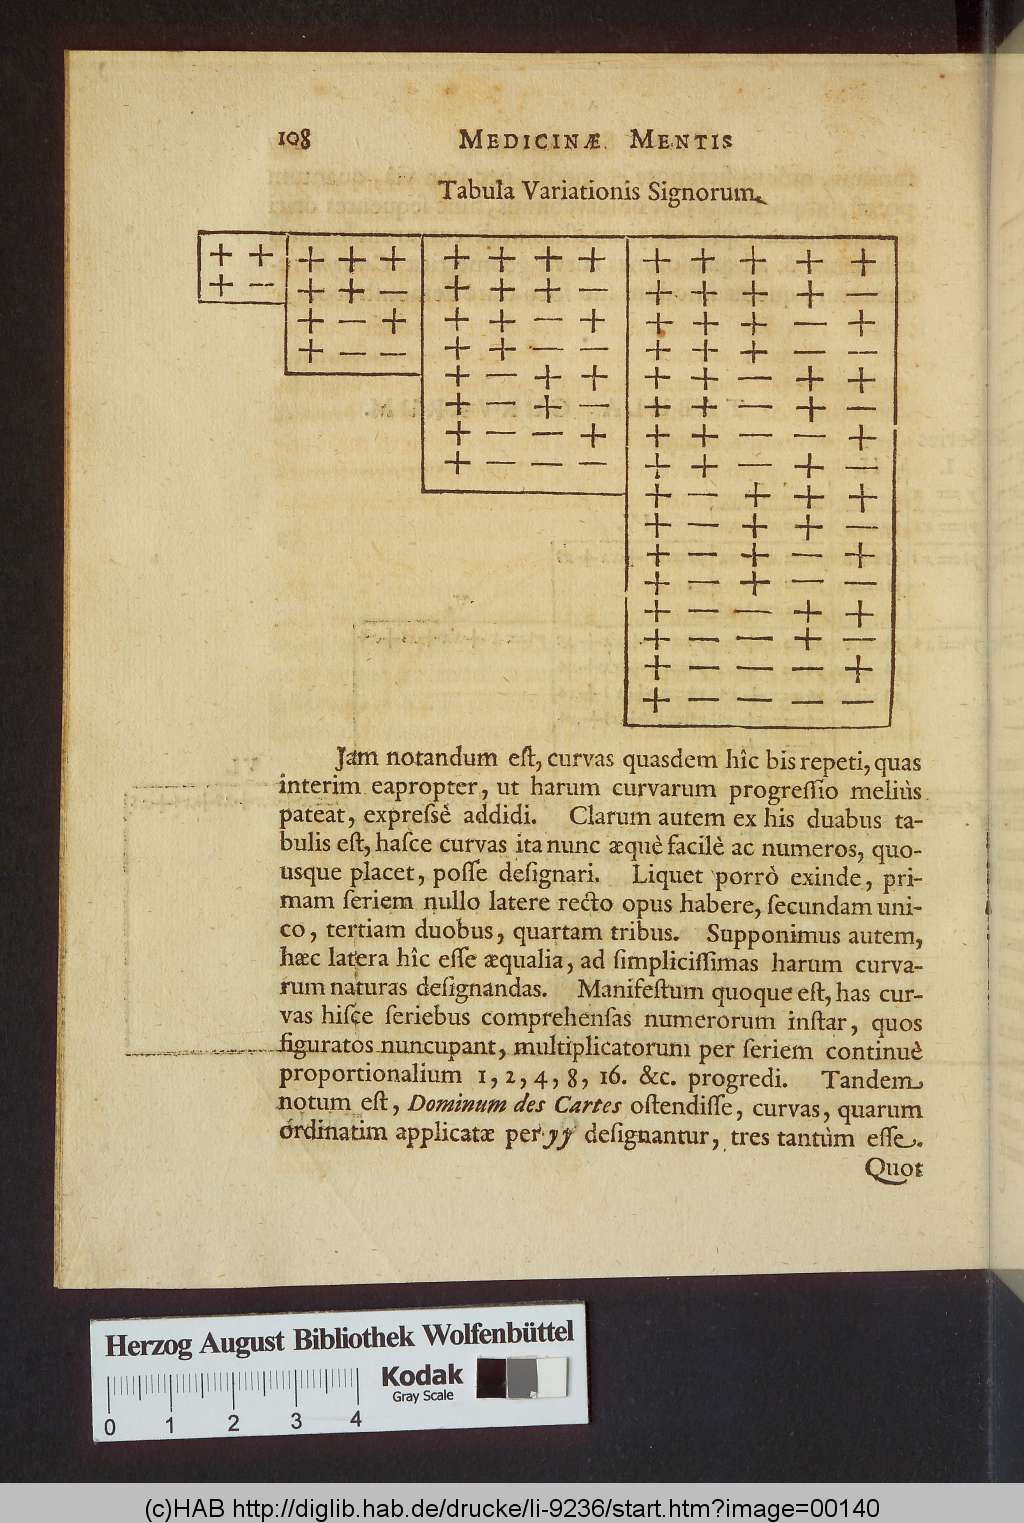 108 MEDICINÆ MENTIS
Tabula Variationis Signorum.
+ + + + + + + + + + + + + +
+ − + + − + + + − + + + + −
+ − + + + − + + + + − +
+ − − + + − − + + + − −
+ − + + + + − + +
+ − + − + + − + −
+ − − + + + − − +
+ − − − + + − + −
+ − + + +
+ − + + −
+ − + − +
+ − + − −
+ − − + +
+ − − + −
+ − − − +
+ − − − −
Jam notandum eſt, curvas quasdem hîc bis repeti, quas
interim eapropter, ut harum curvarum progreſſio meliùs
pateat, expreſsè addidi. Clarum autem ex his duabus ta-
bulis eſt, haſce curvas ita nunc æquè facilè ac numeros, quo-
usque placet, poſſe deſignari. Liquet porrò exinde, pri-
mam ſeriem nullo latere recto opus habere, ſecundam uni-
co, tertiam duobus, quartam tribus. Supponimus autem,
hæc latera hîc eſſe æqualia, ad ſimpliciſſimas harum curva-
rum naturas deſignandas. Manifeſtum quoque eſt, has cur-
vas hiſce ſeriebus comprehenſas numerorum inſtar, quos
figuratos nuncupant, multiplicatorum per ſeriem continuè
proportionalium 1, 2, 4, 8, 16. &c. progredi. Tandem
notum eſt, Dominum des Cartes oſtendiſſe, curvas, quarum
ordinatim applicatæ per yy deſignantur, tres tantùm eſſe.
Quot
Herzog August Bibliothek Wolfenbüttel
Kodak
Gray Scale
0 1 2 3 4
(c)HAB http://diglib.hab.de/drucke/li-9236/start.htm?image=00140